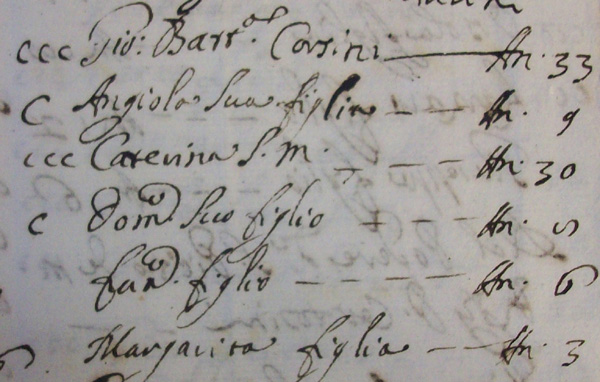 ccc Gio: Bartol Corsini — An. 33
C Angiola Sua figlia — — An. 9
ccc Caterina S. M. — — — An. 30
C Domco Suo figlio — — — An.
Franco. figlio — — — — An. 6
Margarita figlia — — An. 3